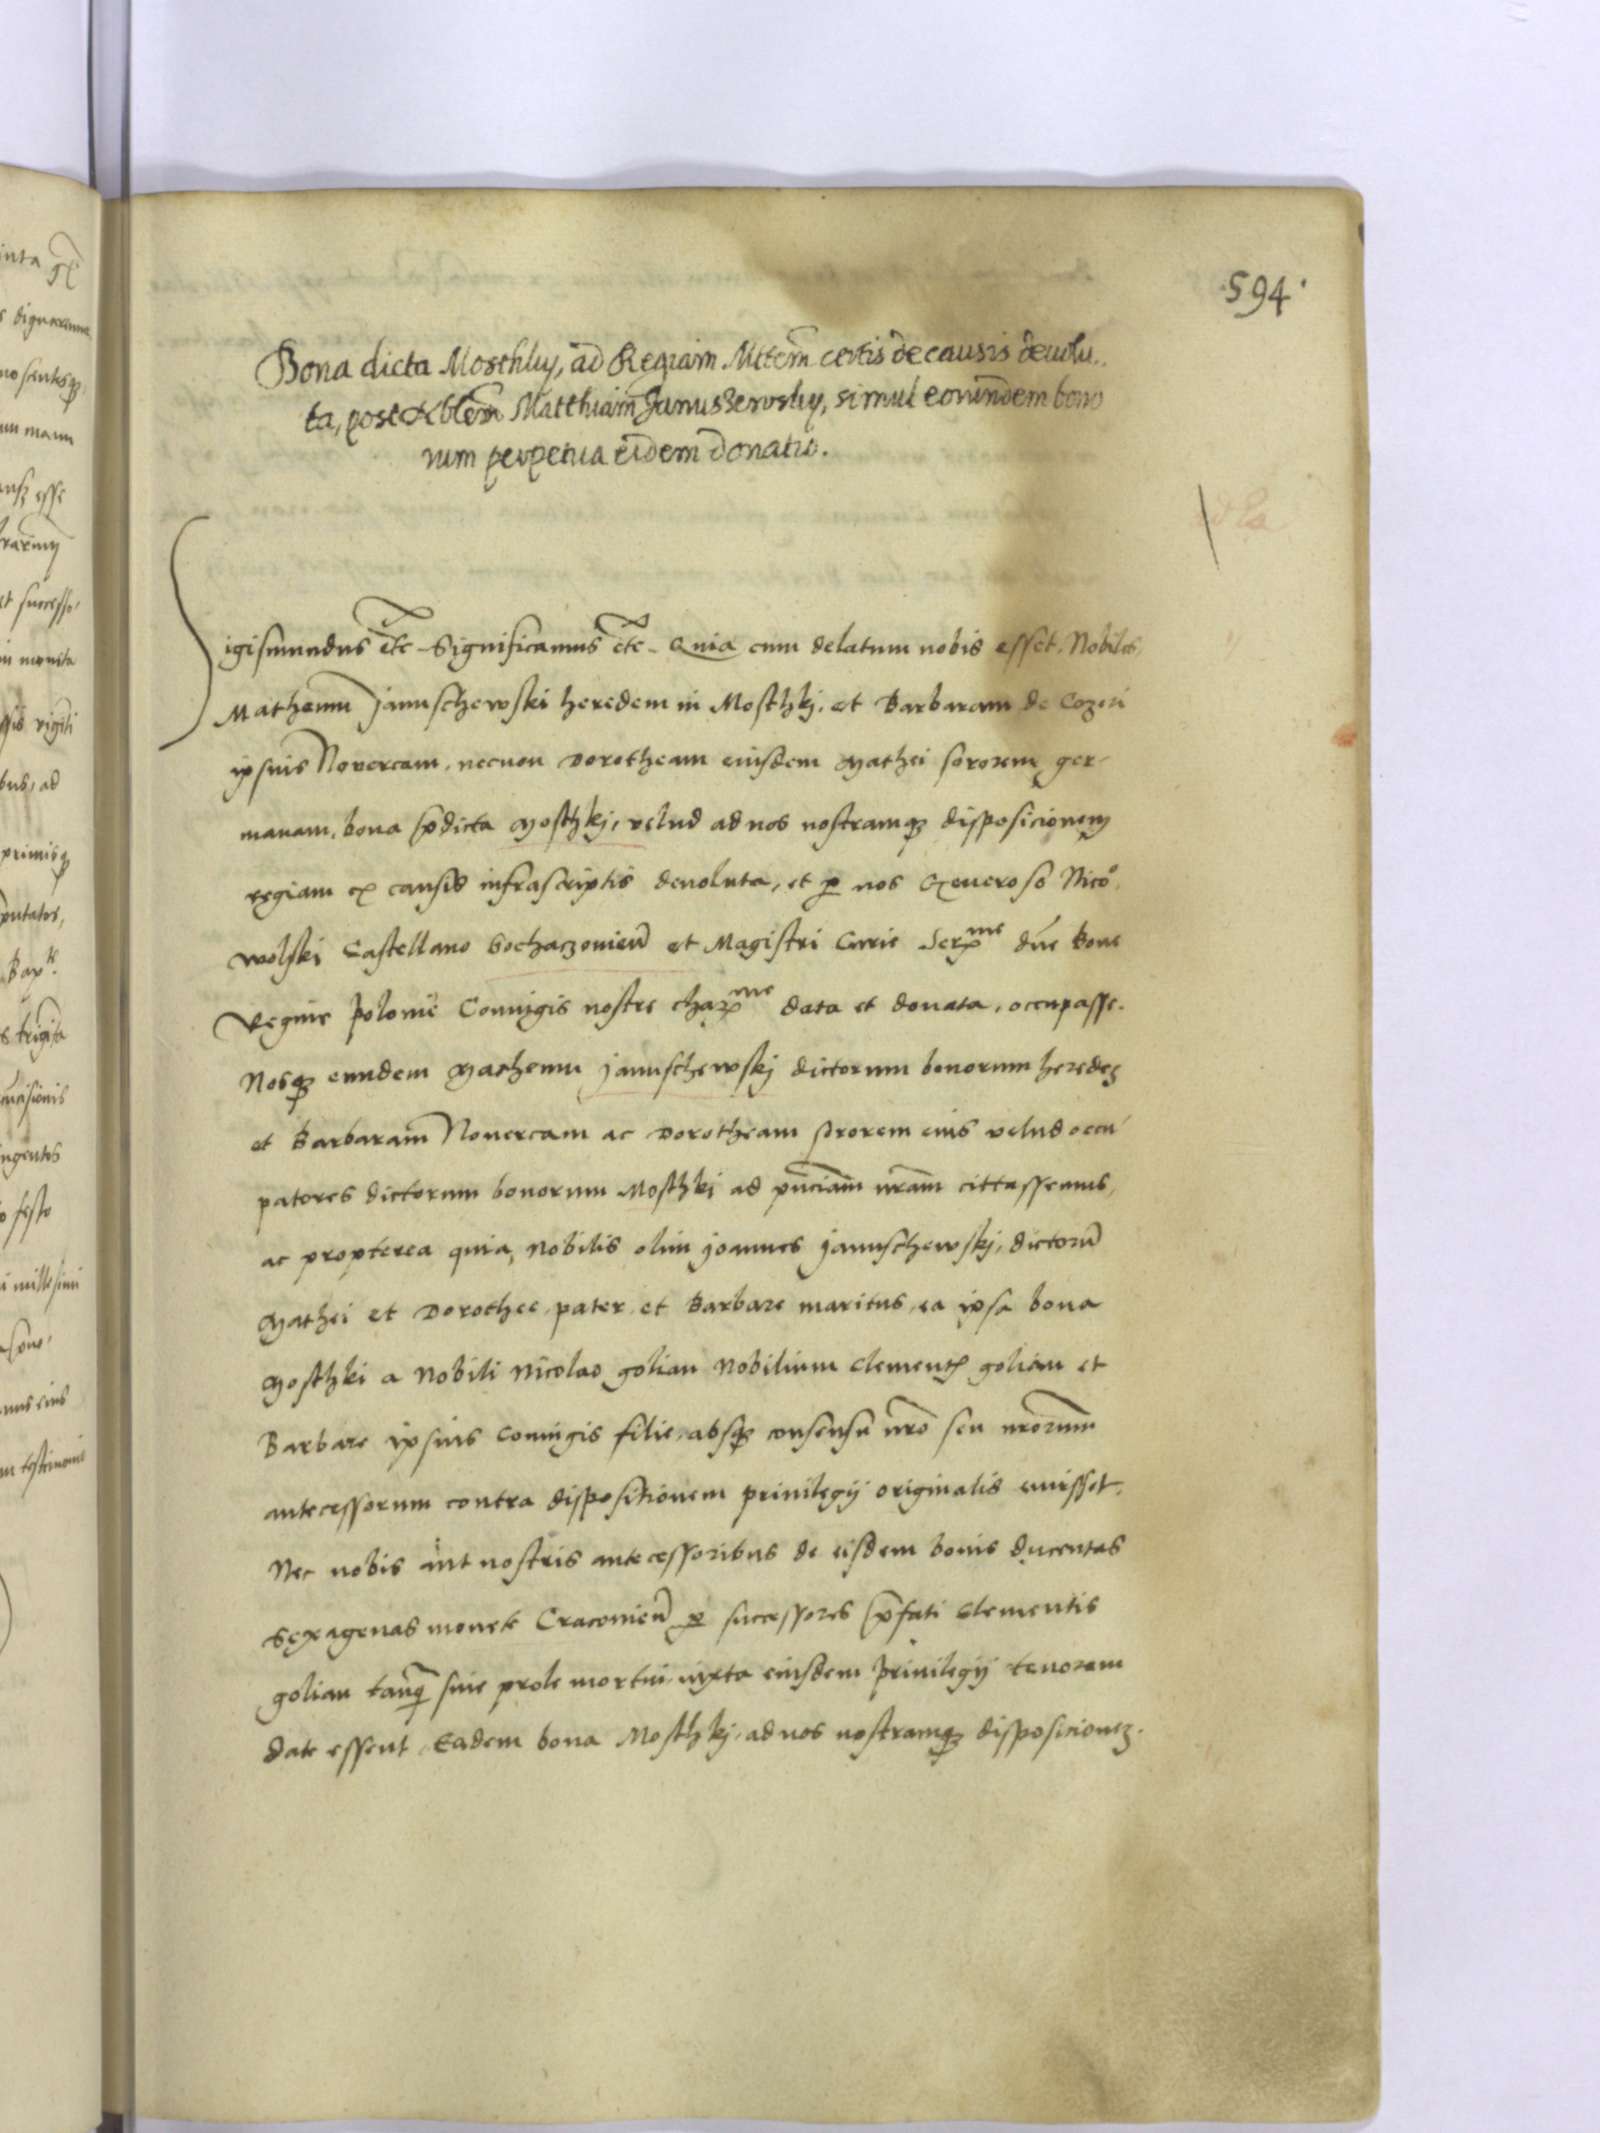 594
Bona dicta Mosthky, ad Regiam Mttem certis de causis devolu-
ta, post Nblem Matthiam Januszewsky, simul eorundem bono
rum perpetua eidem donatio.
Sigismundus etc Significamus etc Quia cum delatum nobis esset, Nobiles
Matheum Januschewski heredem in Mosthkj, et Barbaram de Cozeri
ipsius Novercam, necnon Dorotheam eiusdem Mathei sororem ger-
manam, bona pdicta Mosthkj, velud ad nos nostramq disposicionem
regiam ex causis infrascriptis devoluta, et p nos Generoso Nico
wolski Castellano Sochaczouien et Magistri Curie Serme dne Bone
Regine Polonie Coniugis nostre charme data et donata, occupasse.
Nosq eundem Matheum Januschewskj dictorum bonorum herede
et Barbaram Nouercam ac Dorotheam sororem eius velud occu-
patores dictorum bonorum Mosthki ad pnciam nram cittassemus,
ac propterea quia, Nobilis olim Joannes Januschewskj, dictoru
Mathei et Dorothee pater et Barbare maritus, ea ipsa bona
Mosthki a Nobili Nicolao golian Nobilium Clementis golian et
Barbare ipsius Coniugis filie, absq consensu nro seu nrorum
antecessorum contra dispositionem priuilegij originalis emisset.
Nec nobis aut nostris antecessoribus de eisdem bonis ducentas
sexagenas monete Cracouien p successores pfati Clementis
golian tanq sine prole mortui iuxta eiusdem priuilegij tenorem
date essent, Eadem bona Mosthkj, ad nos nostramq disposicione